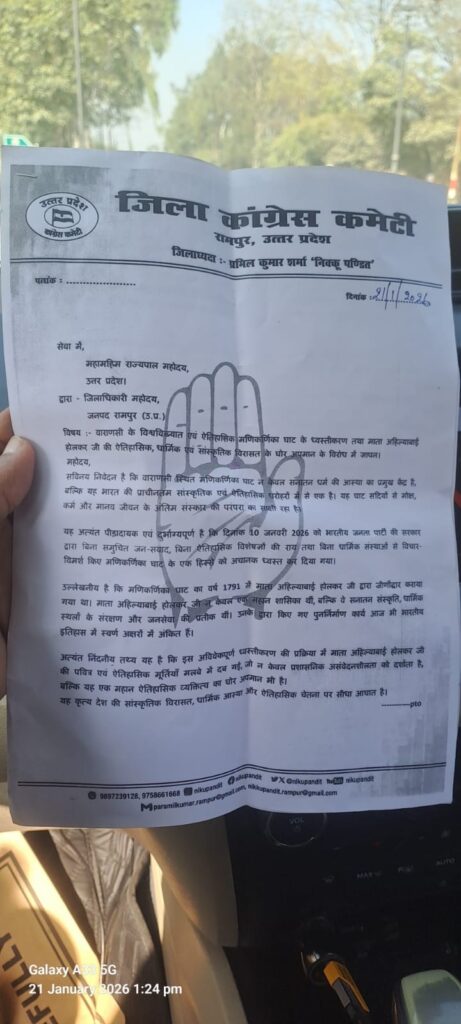 उत्तर प्रदेश
कांग्रेस कमेटी
जिला कांग्रेस कमेटी
रामपुर, उत्तर प्रदेश
जिलाध्यक्ष :- प्रमिल कुमार शर्मा 'निक्कू पण्डित'
पत्रांक : ......................
दिनांक :21/1/2026
सेवा में,
महामहिम राज्यपाल महोदय,
उत्तर प्रदेश।
द्वारा - जिलाधिकारी महोदय,
जनपद रामपुर (उ.प्र.)
विषय :- वाराणसी के विश्वविख्यात एवं ऐतिहासिक मणिकर्णिका घाट के ध्वस्तीकरण तथा माता अहिल्याबाई
होलकर जी की ऐतिहासिक, धार्मिक एवं सांस्कृतिक विरासत के घोर अपमान के विरोध में ज्ञापन।
महोदय,
सविनय निवेदन है कि वाराणसी स्थित मणिकर्णिका घाट न केवल सनातन धर्म की आस्था का प्रमुख केंद्र है,
बल्कि यह भारत की प्राचीनतम सांस्कृतिक एवं ऐतिहासिक धरोहरों में से एक है। यह घाट सदियों से मोक्ष,
कर्म और मानव जीवन के अंतिम संस्कार की परंपरा का साक्षी रहा है।
यह अत्यंत पीड़ादायक एवं दुर्भाग्यपूर्ण है कि दिनांक 10 जनवरी 2026 को भारतीय जनता पार्टी की सरकार
द्वारा बिना समुचित जन-संवाद, बिना ऐतिहासिक विशेषज्ञों की राय तथा बिना धार्मिक संस्थाओं से विचार-
विमर्श किए मणिकर्णिका घाट के एक हिस्से को अचानक ध्वस्त कर दिया गया।
उल्लेखनीय है कि मणिकर्णिका घाट का वर्ष 1791 में माता अहिल्याबाई होलकर जी द्वारा जीर्णोद्वार कराया
गया था। माता अहिल्याबाई होलकर जी न केवल एक महान शासिका थीं, बल्कि वे सनातन संस्कृति, धार्मिक
स्थलों के संरक्षण और जनसेवा की प्रतीक थीं। उनके द्वारा किए गए पुनर्निर्माण कार्य आज भी भारतीय
इतिहास में स्वर्ण अक्षरों में अंकित हैं।
अत्यंत निंदनीय तथ्य यह है कि इस अविवेकपूर्ण ध्वस्तीकरण की प्रक्रिया में माता अहिल्याबाई होलकर जी
की पवित्र एवं ऐतिहासिक मूर्तियाँ मलबे में दब गईं, जो न केवल प्रशासनिक असंवेदनशीलता को दर्शाता है,
बल्कि यह एक महान ऐतिहासिक व्यक्तित्व का घोर अपमान भी है।
यह कृत्य देश की सांस्कृतिक विरासत, धार्मिक आस्था और ऐतिहासिक चेतना पर सीधा आघात है।
------------pto
9897239128, 9758661668 nikupandit nikupandit @nikupandit nikupandit
paramilkumar.rampur@gmail.com, nikkupandit.rampur@gmail.com
VOL
MAX
AUTO
EFULLY
Galaxy A35 5G
21 January 2026 1:24 pm